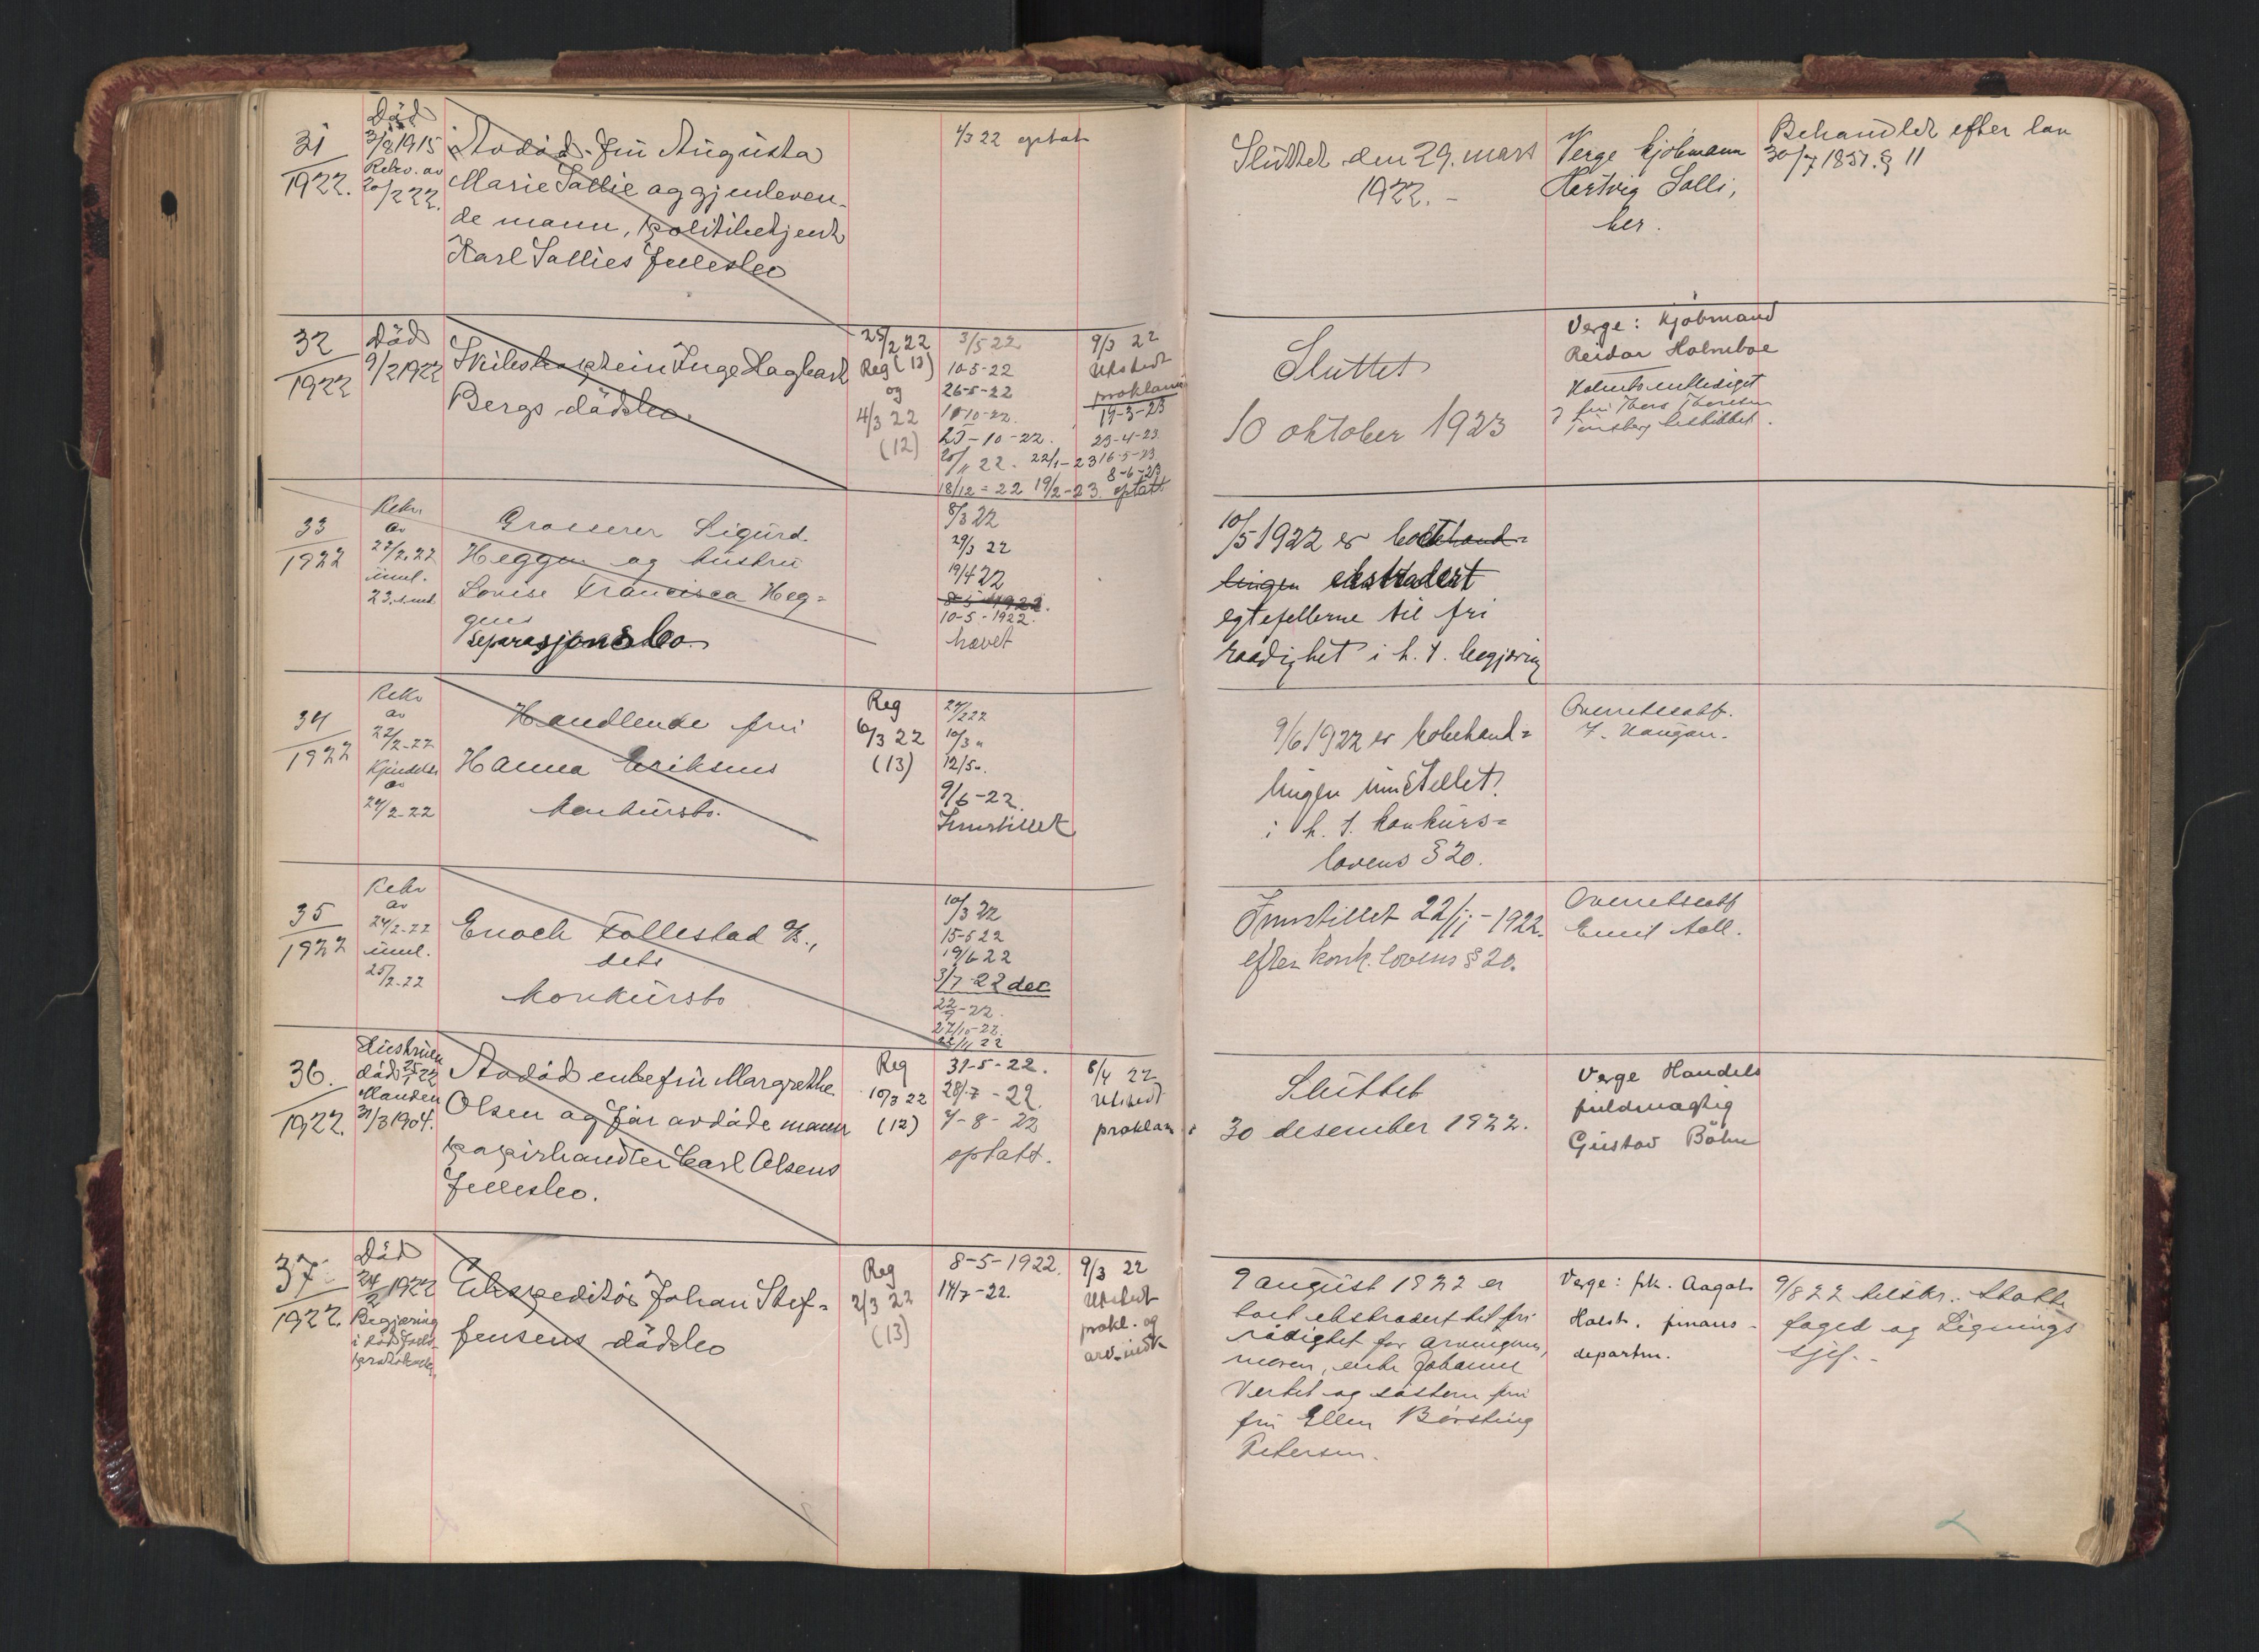 31
1922.
Död
3/8 1915
Rekv. av
20/2 22.
Avdöd fru Augusta
Marie Sallie og gjenleven-
de mann, politibetjent
Karl Sallies fællesbo
4/3 22 optatt
Sluttet den 29. mars
1922. -
Verge kjöbmann
Hartvig Salli,
her.
Behandlet efter lov
30/7 1851. § 11
32
1922
Död
9/2 1922
Skibskaptein Inge Hagbart
Bergs dödsbo.
25/2 22
Reg (13)
og
4/3 22
(12)
3/5 22
10-5-22
26-5-22
10-10-22.
25-10-22.
20/11 22. 22/1-23
18/12-22 19/2-23. optatt
9/3 22
Utstedt
proklama
19-3-23
23-4-23
16-5-23
8-6-23
Sluttet
10 oktober 1923
Verge: Kjöbmand
Reidar Holmboe
33
1922
Rekv
av
22/2.22
innl.
23. s.md.
Grosserer Sigurd
Heggen og hustru
Lovise Francisca Heg=
gens
Separasjonsbo.
8/3 22
29/3 22
19/4 22
8-5-1922.
10-5-1922.
hævet
10/5 1922 er bobehand=
lingen ekstradert
egtefellerne til fri
raadighet i h. t. begjæring
34
1922
Rekv
av
22/2-22
Kjendelse
av
24/2-22
Handlende fru
Hanna Eriksens
konkursbo.
Reg
6/3 22
(13)
24/2 22
10/3 "
12/5 ".
9/6-22.
Innstillet
9/6 1922 er bobehand=
lingen innstillet
i h. t. konkurs=
lovens § 20.
Overretssakf.
35
1922
Rekv
av
24/2-22
innl.
25/2-22
Enoch Follestad %.,
dets
konkursbo
10/3 22
15-5 22
19/6 22
3/7-22 dec
22/9-22.
27/10-22.
22/11 22
Innstillet 22/11-1922.
efter konk. lovens § 20.
Overretssakf
Emil Aall.
36.
1922.
Hustruen
död 25/1 22
Manden
31/3 1904.
Avdöd enkefru Margrethe
Olsen og før avdöde mann
papirhandler Carl Olsens
fællesbo.
Reg
10/3 22
(12)
31-5-22.
28/7-22.
4-8-22
optatt.
8/4 22
Utstedt
proklama
Sluttet
30 desember 1922.
Verge Handels
fuldmægtig
Gustav Böhn
37
1922.
Död
24/2 1922
Begjæring
i dödsfalds
protokoll.
Ekspeditör Johan Stef=
fensens dödsbo
Reg
2/3 22
(13)
8-5-1922.
14/7-22.
9/3 22
Utstedt
prokl. og
arv. indk
9 august 1922 er
boet ekstradert til fri
rådighet for arvingene,
moren, enke Johanne
Vertet og søstern fru
fru Ellen Børsting
Petersen.
Verge: frk. Aagot
Holst. finans-
departm.
9/8 22 tilskr. Skatte
foged og Lignings
sjef. -